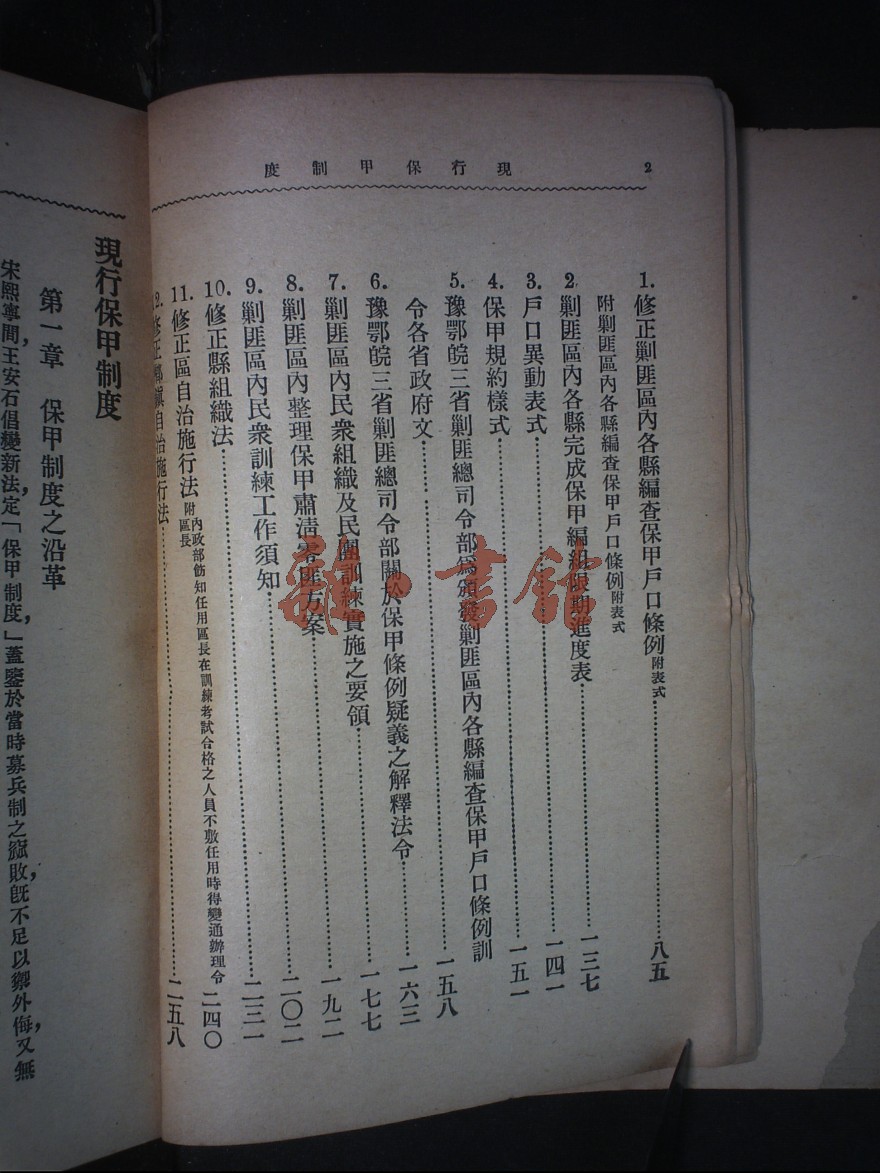 現行保甲制度 2
1. 修正剿匪區內各縣編查保甲戶口條例附表式……八五
附剿匪區內各縣編查保甲戶口條例附表式
2. 剿匪區內各縣完成保甲編組限期進度表……一三七
3. 戶口異動表式……一四一
4. 保甲規約樣式……一五一
5. 豫鄂皖三省剿匪總司令部為頒發剿匪區內各縣編查保甲戶口條例訓
令各省政府文……一五八
6. 豫鄂皖三省剿匪總司令部關於保甲條例疑義之解釋法令……一六三
7. 剿匪區內民衆組織及民團訓練實施之要領……一七七
8. 剿匪區內整理保甲肅清零匪方案……一九二
9. 剿匪區內民衆訓練工作須知……二〇二
10. 修正縣組織法……二三一
11. 修正區自治施行法附內政部飭知任用區長在訓練考試合格之人員不敷任用時得變通辦理令 區長 二四〇
12. 修正鄉鎭自治施行法……二五八
現行保甲制度
第一章 保甲制度之沿革
宋熙寧間，王安石倡變新法，定「保甲制度，」蓋鑒於當時募兵制之窳敗，旣不足以禦外侮，又無
雜·書館